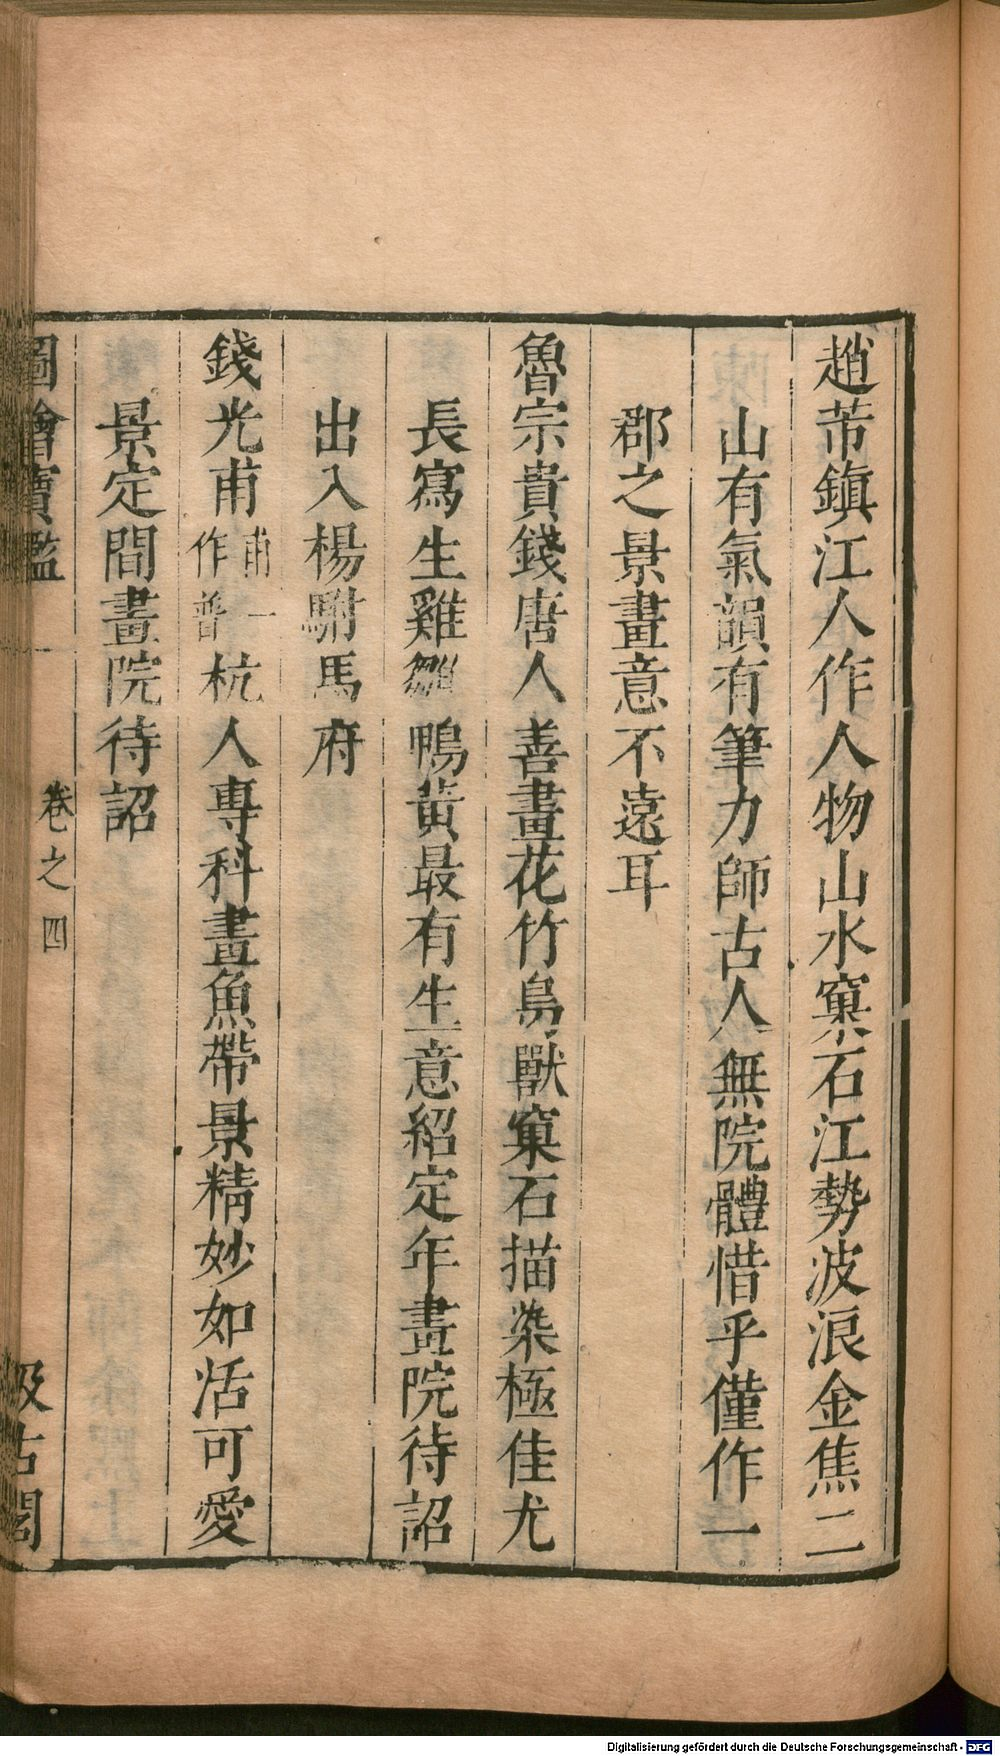 趙芾鎮江人作人物山水窠石江勢波浪金焦二
山有氣韻有筆力師古人無院體惜乎僅作一
郡之景畫意不遠耳
魯宗貴錢唐人善畫花竹鳥獸窠石描染極佳尤
長寫生雞雛鴨黃最有生意紹定年畫院待詔
出入楊駙馬府
錢光甫甫一作普杭人專科畫魚帶景精妙如活可愛
景定間畫院待詔
圖繪寶鑑 卷之四 汲古閣
Digitalisierung gefördert durch die Deutsche Forschungsgemeinschaft - DFG